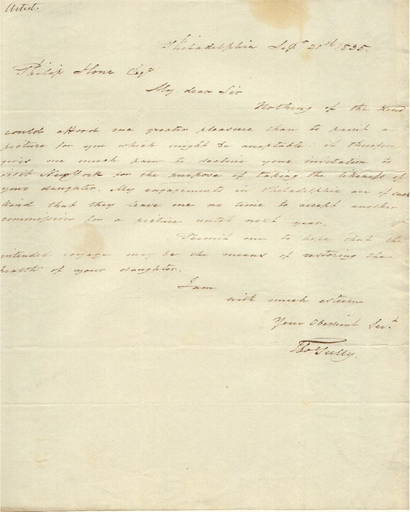 Artist.
Philadelphia Sep. 20th 1835.
Philip Hone Esqr
My dear Sir
Nothing of the kind
could afford me greater pleasure than to paint a
picture for you which might be acceptable. it therefore
gives me much pain to decline your invitation to
visit New York for the purpose of taking the likeness of
your daughter. My engagements in Philadelphia are of such
kind that they leave me no time to accept another
commission for a picture until next year.
Permit me to hope that the
intended voyage may be the means of restoring the
health of your daughter.
I am
with much esteem
Your obedient Sert.
Tho Sully.